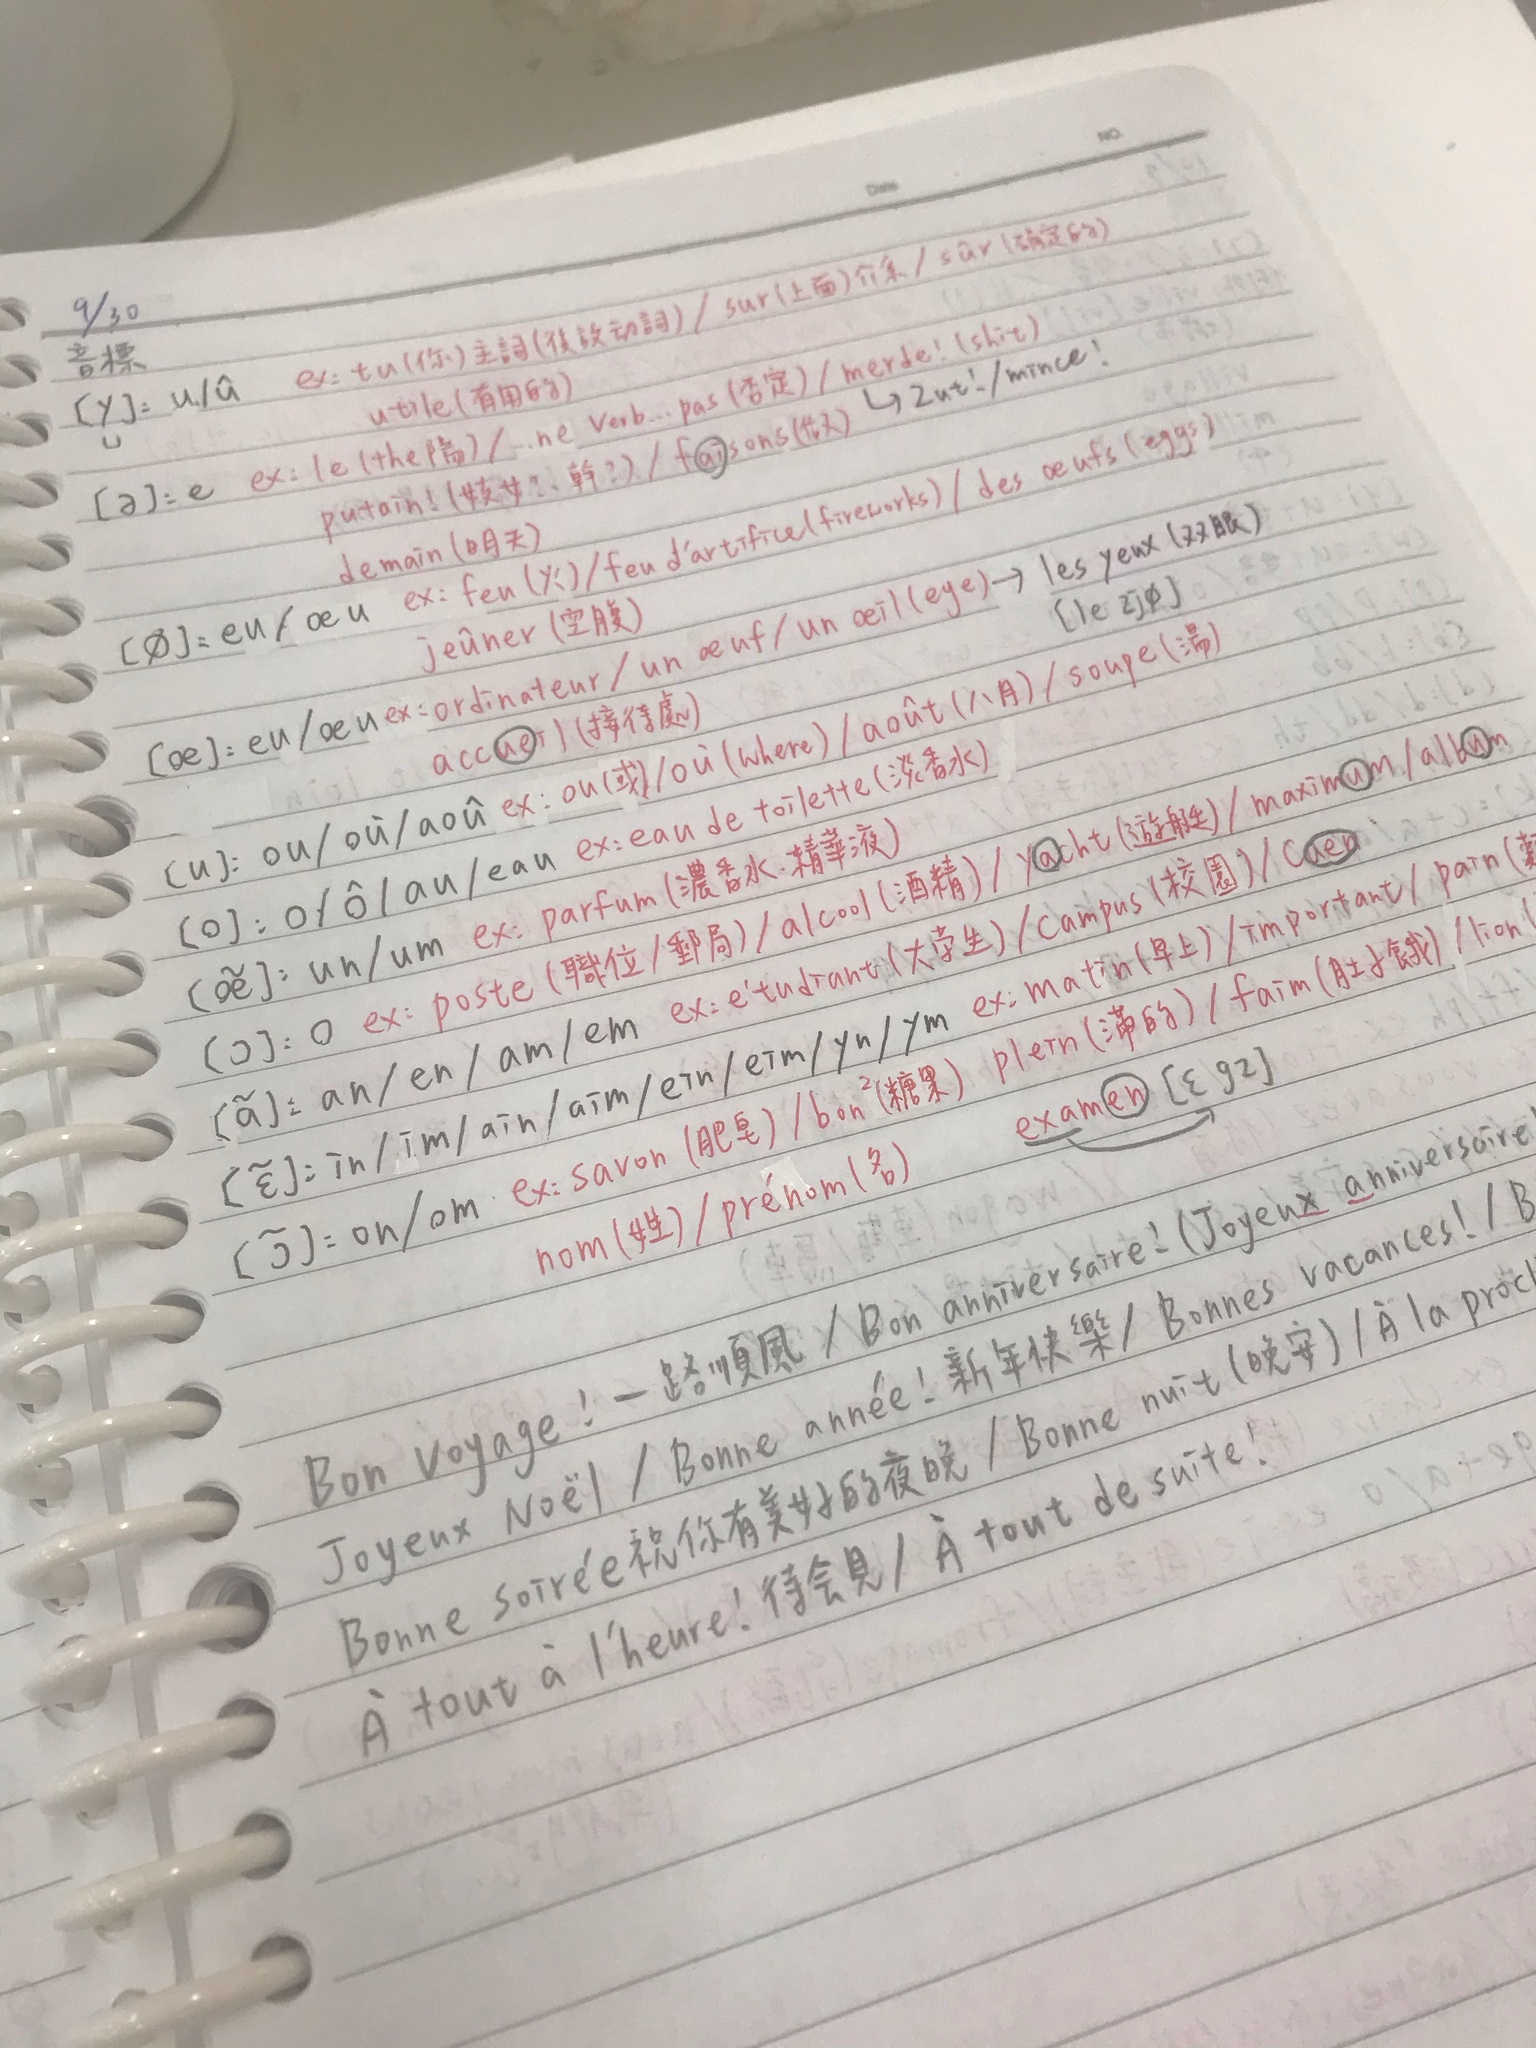 NO.
Date
9/30
音標
[y]: u/û ex: tu(你)主詞(後放动詞)/sur(上面)介系/sûr(確定的)
utile(有用的)
[ə]: e ex: le(the陽)/...ne verb...pas(否定)/merde!(shit)
↳Zut!/mince!
putain!(妓女?、幹?)/faisons(做)
demain(明天)
[Ø]: eu/œu ex: feu(火)/feu d'artifice(fireworks)/des œufs(eggs)
jeûner(空腹)
[œ]: eu/œu ex: ordinateur/un œuf/un œil(eye)→les yeux(双眼)
[le zjø]
accueil(接待處)
[u]: ou/où/aoû ex: ou(或)/où(where)/août(八月)/soupe(湯)
[o]: o/ô/au/eau ex: eau de toilette(淡香水)
[œ̃]: un/um ex: parfum(濃香水.精華液)
[ɔ]: o ex: poste(職位/郵局)/alcool(酒精)/yacht(遊艇)/maximum/album
[ã]: an/en/am/em ex: e'tudiant(大學生)/campus(校園)/Caen
[ɛ̃]: in/im/ain/aim/ein/eim/yn/ym ex: matin(早上)/important/pain(
plein(滿的)/faim(肚子餓)/lion(
[ɔ̃]: on/om. ex: savon(肥皂)/bon²(糖果)
examen [ɛgz]
nom(姓)/prénom(名)
Bon voyage! 一路順風/Bon anniversaire!(Joyeux anniversaire
Joyeux Noël/Bonne année!新年快樂/Bonnes vacances!/B
Bonne soirée祝你有美好的夜晚/Bonne nuit(晚安)/À la
À tout à l'heure!待会見/À tout de suite!